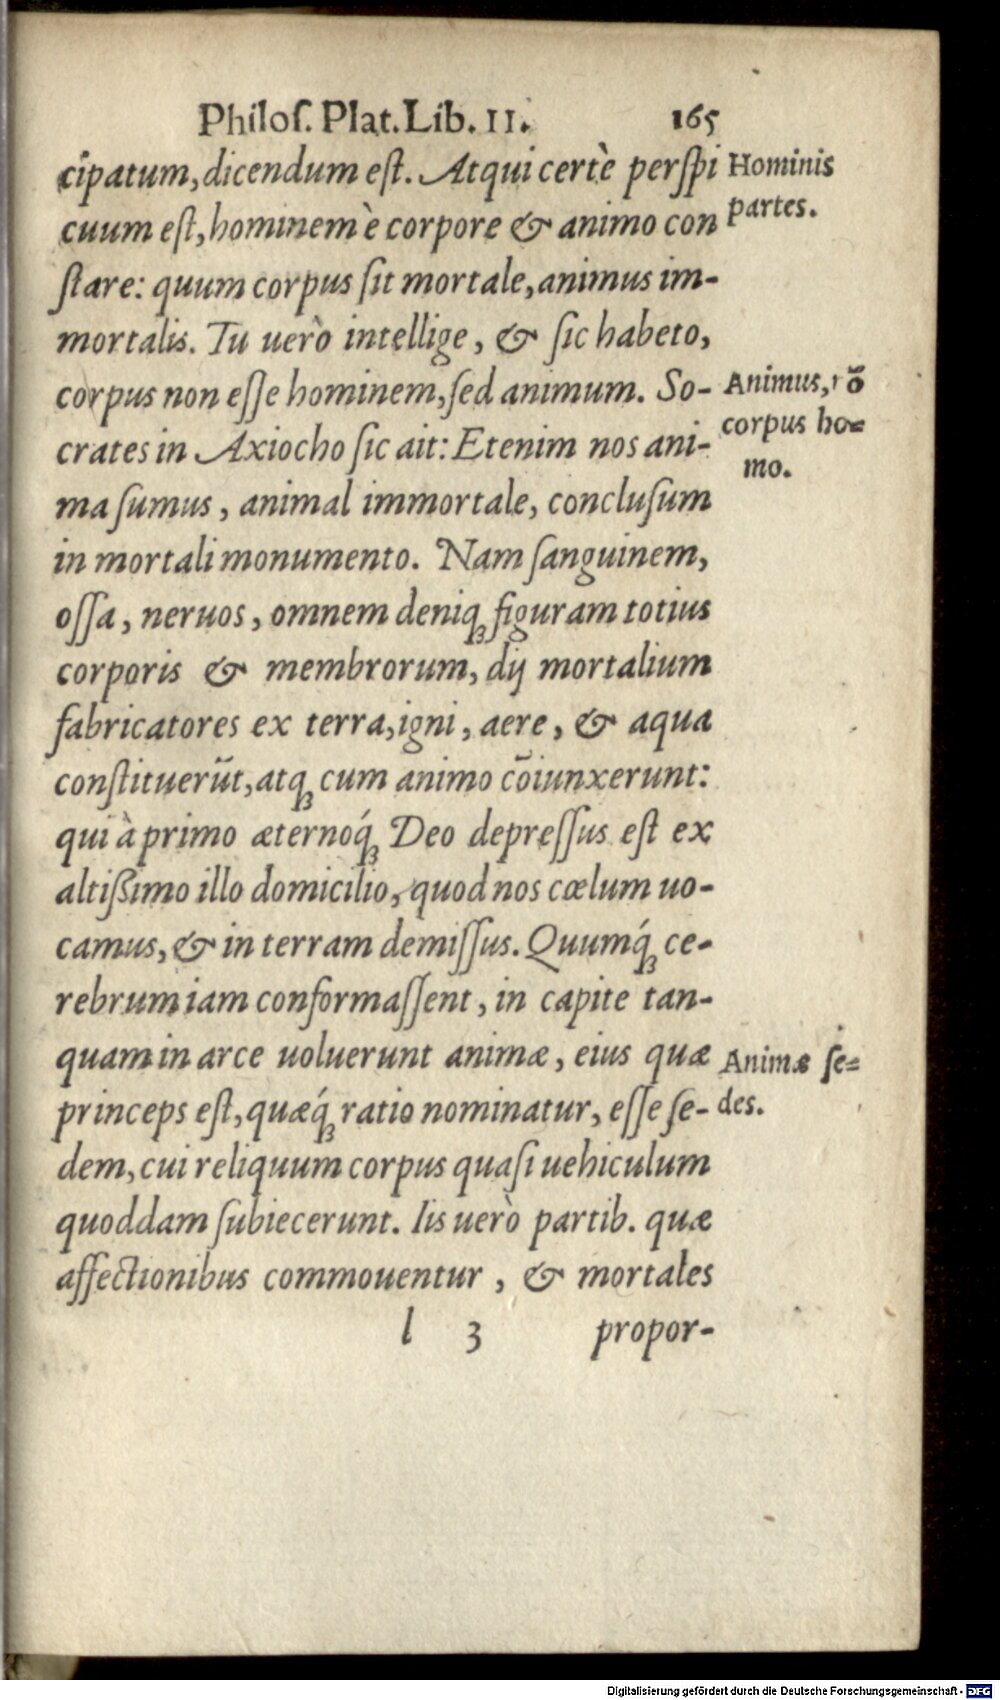 Philoſ. Plat. Lib. II. 165
cipatum, dicendum eſt. Atqui certè perſpi
cuum eſt, hominem è corpore & animo con
ſtare: quum corpus ſit mortale, animus im-
mortalis. Tu uerò intellige, & ſic habeto,
corpus non eſſe hominem, ſed animum. So-
crates in Axiocho ſic ait: Etenim nos ani-
ma ſumus, animal immortale, concluſum
in mortali monumento. Nam ſanguinem,
oſſa, neruos, omnem deniqꝫ figuram totius
corporis & membrorum, dij mortalium
fabricatores ex terra, igni, aere, & aqua
conſtituerūt, atqꝫ cum animo cōiunxerunt:
qui à primo æternoq́ꝫ Deo depreſſus eſt ex
altißimo illo domicilio, quod nos cœlum uo-
camus, & in terram demiſſus. Quumq́ꝫ ce-
rebrum iam conformaſſent, in capite tan-
quam in arce uoluerunt animæ, eius quæ
princeps eſt, quæq́ꝫ ratio nominatur, eſſe ſe-
dem, cui reliquum corpus quaſi uehiculum
quoddam ſubiecerunt. Iis uerò partib. quæ
affectionibus commouentur, & mortales
l 3 propor-
Hominis
partes.
Animus,
corpus ho-
mo.
Animæ ſe-
des.
Digitalisierung gefördert durch die Deutsche Forschungsgemeinschaft - DFG